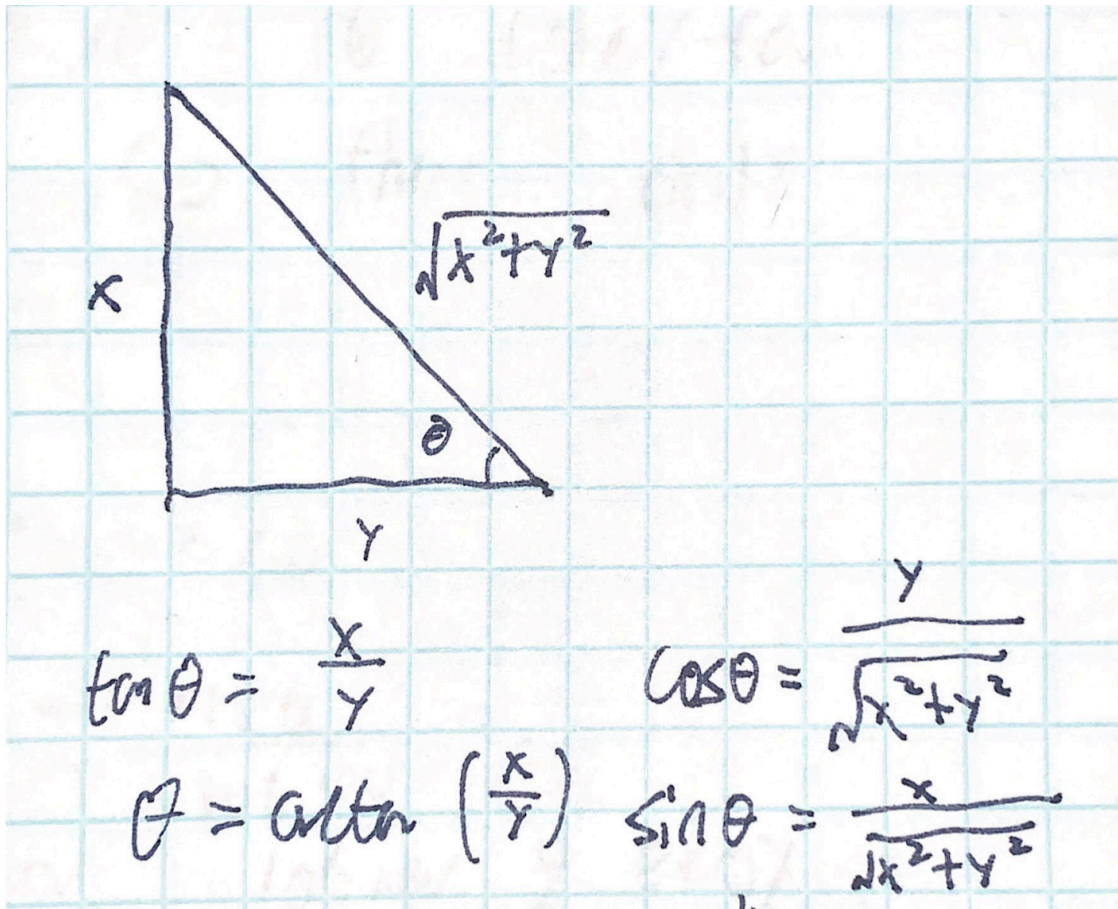 √(x²+y²)
x
θ
y
tan θ = x/y
cos θ = y/√(x²+y²)
θ = arctan (x/y)
sin θ = x/√(x²+y²)